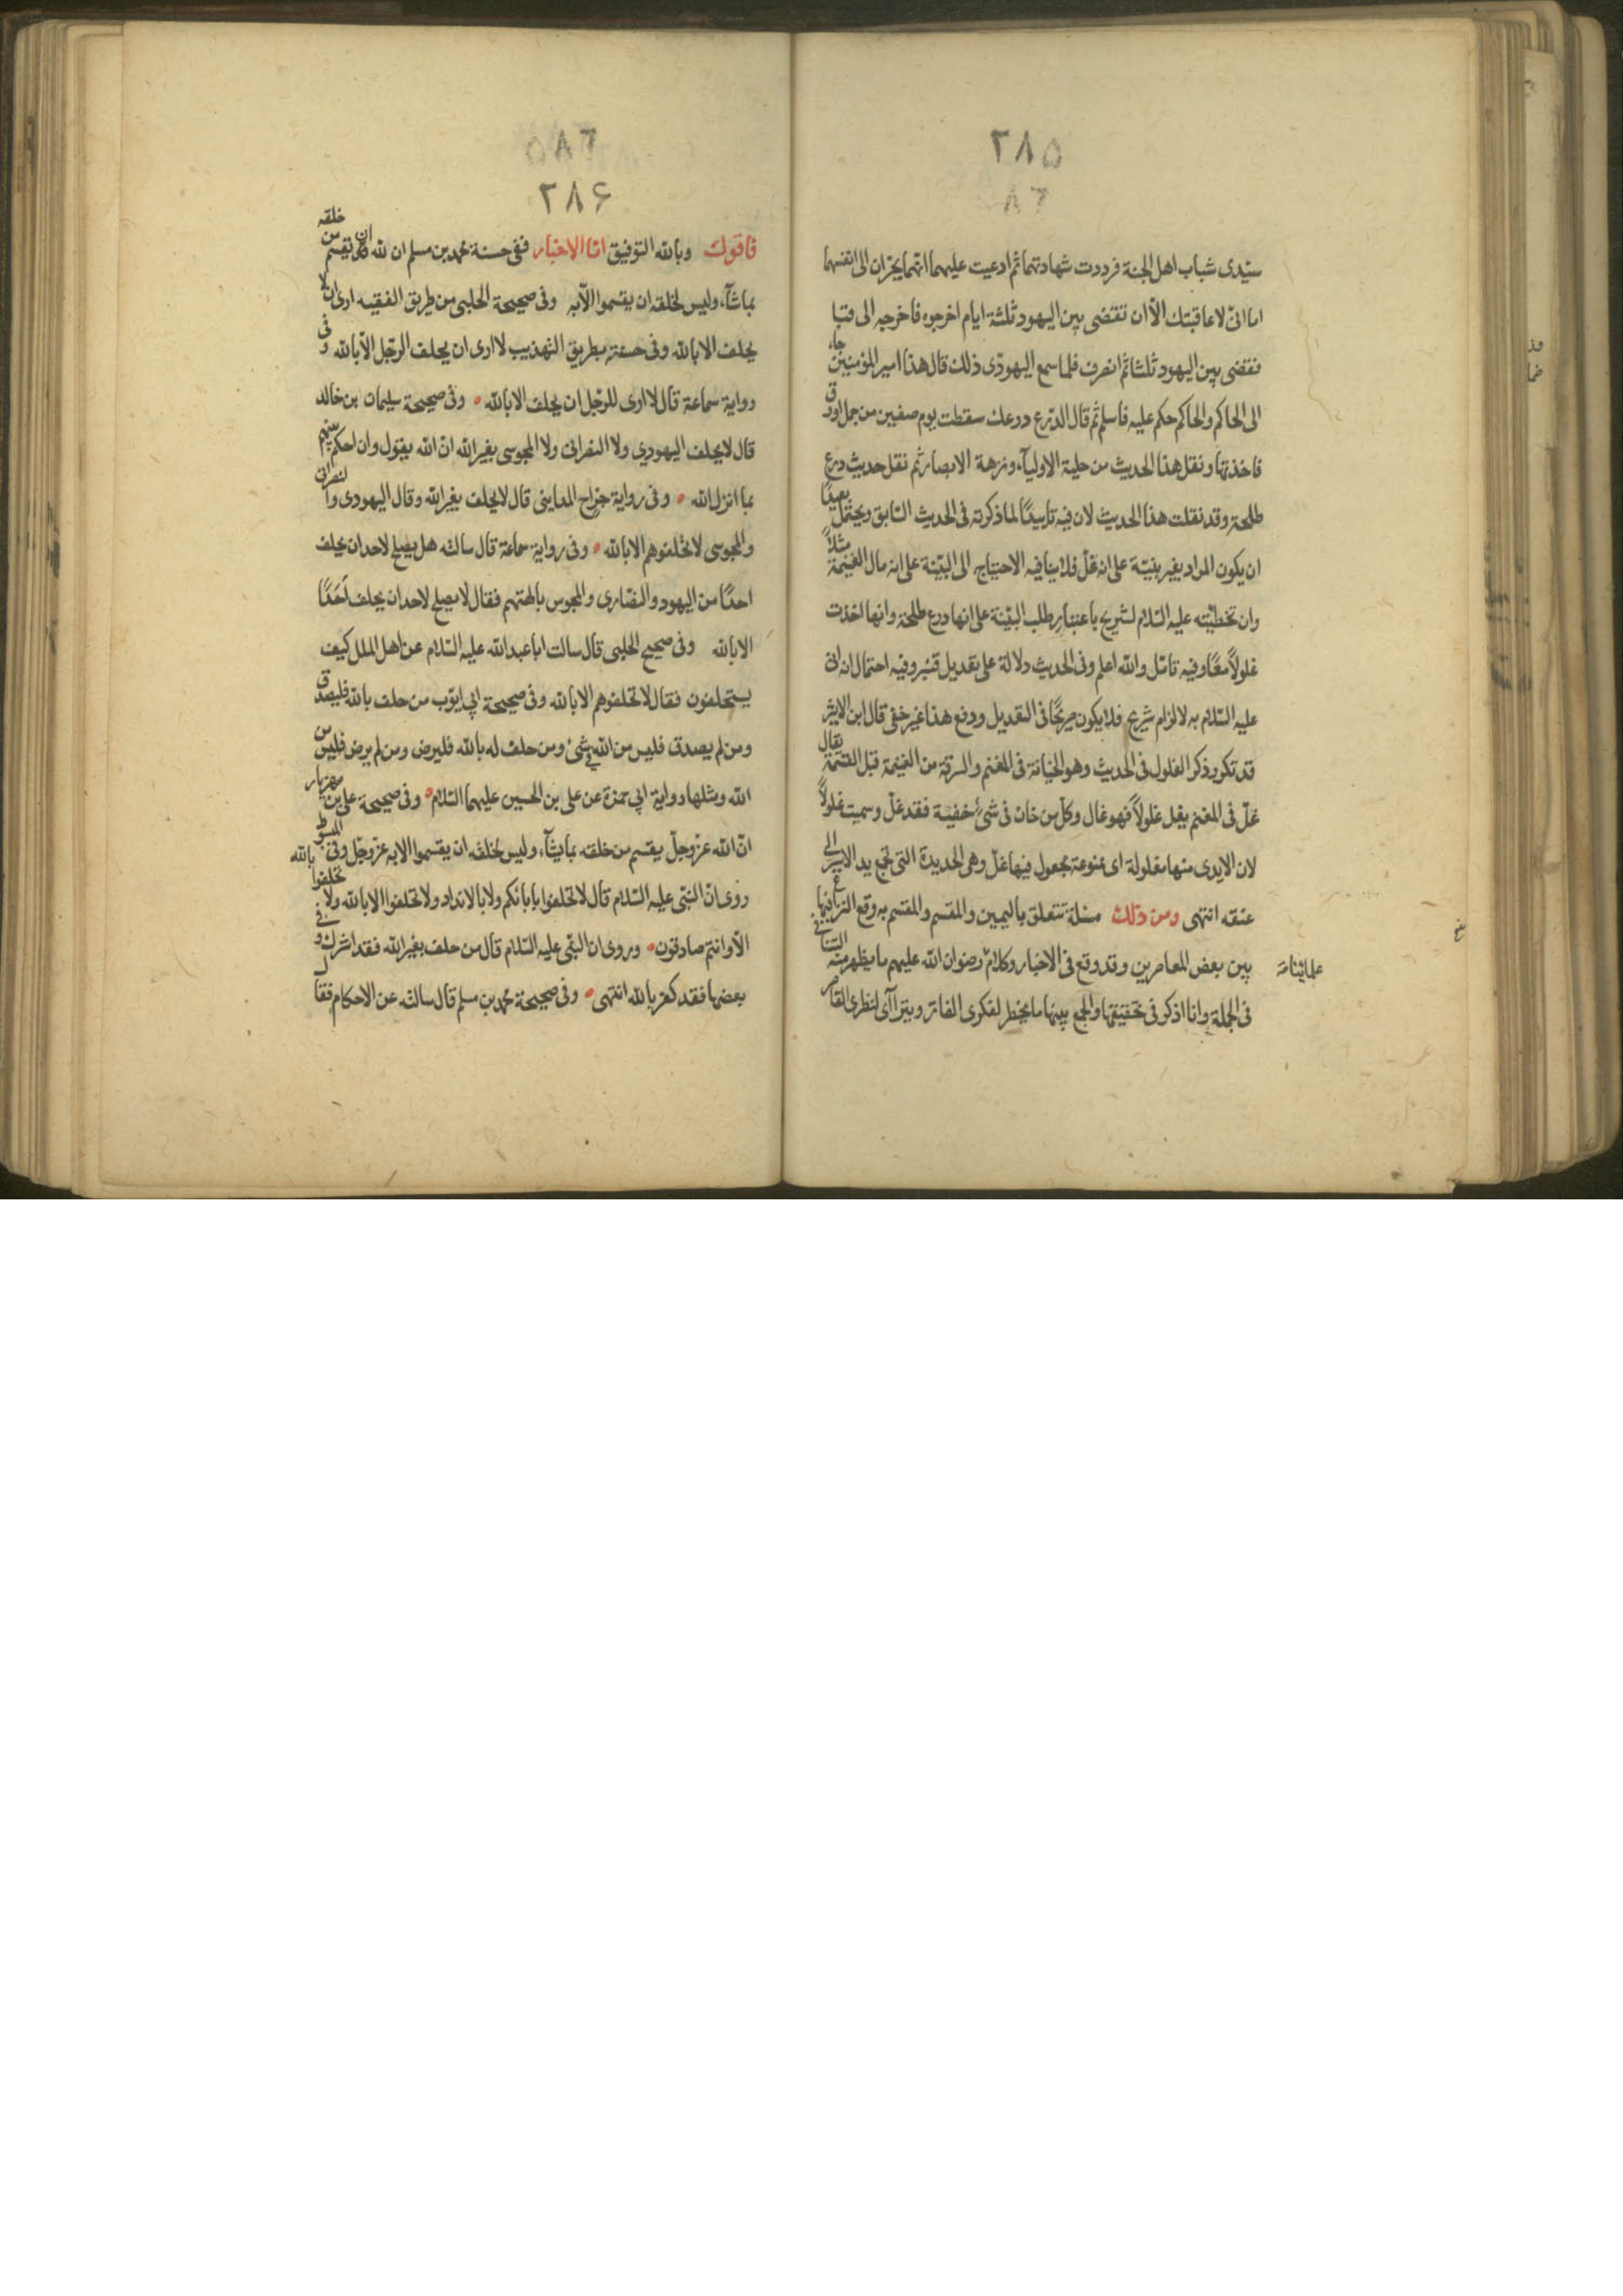 ٢٨۵
٨٦
سيّدى شباب اهل الجنة فرددت شهادتهما ثم ادعيت عليهما انهما يجران الى انفسهما
اما انى لاعاقبتك الّا ان تقتضى بين اليهود ثلثة ايام اخرجوه فاخرجه الى قبا
فقضى بين اليهود ثلثا ثم انصرف فلما سمع اليهودى ذلك قال هذا امير المؤمنين جاء
الى الحاكم والحاكم حكم عليه فاسلم ثم قال الدرع درعك سقطت يوم صفين من جمل اورق
فاخذتها ونقل هذا الحديث من حلية الاولياء ونزهة الابصار ثم نقل حديث درع
طلحة وقد نقلت هذا الحديث لان فيه تاييدًا لما ذكرته فى الحديث السّابق ويحتمل بعيدًا
ان يكون المراد بغير بنيّة على انه غلّ فلا ينافيه الاحتياج الى البيّنة على انه مال الغنيمة مثلاً
وان تخطئته عليه السّلام لشريح باعتبار طلب البيّنة على انها درع طلحة وانها اخذت
غلولاً معًا وفيه تامّل والله اعلم وفى الحديث دلالة على تعديل قنبر وفيه احتمال انه اتى
عليه السّلام به لالزام شريح فلا يكون صريحًا فى التعديل ودفع هذا غير خفى قال ابن الاثير
قد تكرر ذكر الغلول فى الحديث وهو الخيانة فى المغنم والسرقة من الغنيمة قبل القسمة يقال
غلّ فى المغنم يغل غلولاً فهو غال وكل من خان فى شئ خفية فقد غلّ وسميت غلولاً
لان الايدى منها مغلولة اى ممنوعة مجعول فيها غلّ وهى الحديدة التى تجمع يد الاسير الى
عنقه انتهى ومن ذلك مسئلة تتعلق باليمين والمقسم والمقسم به وقع النزاع فيها
بين بعض المعاصرين وقد وقع فى الاخبار وكلام علمائنا رضوان الله عليهم ما يظهر منه التنافى
فى الجملة وانا اذكر فى تحقيقها والجمع بينها ما يخطر لفكرى الفاتر ويترااى لنظرى القاصر
٥٨٦
٢٨۶
فاقول وبالله التوفيق امّا الاخبار ففى حسنة محمد بن مسلم ان لله ان يقسم من خلقه
بما شاء وليس لخلقه ان يقسموا الّا به وفى صحيحة الحلبى من طريق الفقيه لا ارى ان
يحلف الا بالله وفى حسنته بطريق التهذيب لا ارى ان يحلف الرّجل الّا بالله وفى
رواية سماعة قال لا ارى للرّجل ان يحلف الا بالله وفى صحيحة سليمان بن خالد
قال لا يحلف اليهودي ولا النصرانى ولا المجوسى بغير الله انّ الله يقول وان احكم بينهم
بما انزل الله وفى رواية جراح المداينى قال لا يحلف بغير الله وقال اليهودى والنصرانى
والمجوسى لا تحلفوهم الا بالله وفى رواية سماعة قال سالته هل يصلح لاحد ان يحلف
احدًا من اليهود والنصارى والمجوس بالهتهم فقال لا يصلح لاحد ان يحلف أحدًا
الا بالله وفى صحيح الحلبى قال سالت ابا عبد الله عليه السّلام عن اهل الملل كيف
يستحلفون فقال لا تحلفوهم الا بالله وفى صحيحة ابي ايّوب من حلف بالله فليصدق
ومن لم يصدق فليس من الله فى شئ ومن حلف له بالله فليرض ومن لم يرض فليس من
الله ومثلها رواية ابي حمزة عن على بن الحسين عليهما السّلام وفى صحيحة على بن مهزيار
انّ الله عزّ وجلّ يقسم من خلقه بما يشاء وليس لخلقه ان يقسموا الا به عزّ وجلّ وفى المبسوط
روى انّ النبّى عليه السّلام قال لا تحلفوا بابائكم ولا بالانداد ولا تحلفوا الا بالله ولا تحلفوا بالله
الّا وانتم صادقون وروى ان النبّى عليه السّلام قال من حلف بغير الله فقد اشرك وفى
بعضها فقد كفر بالله انتهى وفى صحيحة محمد بن مسلم قال سالته عن الاحكام فقال